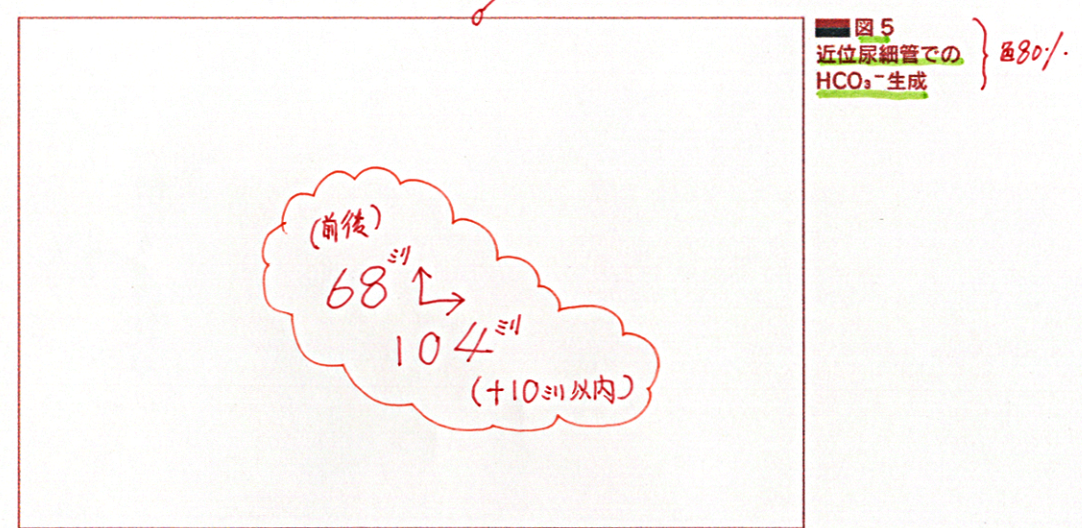 図5
近位尿細管での
HCO₃⁻生成
80%
(前後)
68ミリ
104ミリ
(+10ミリ以内)